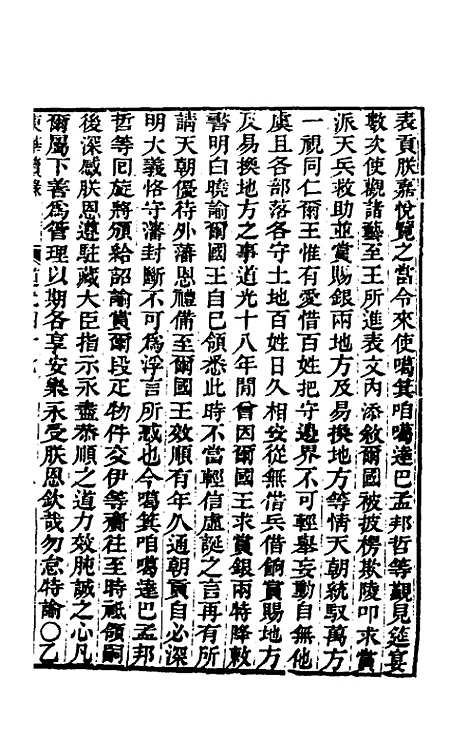 表貢朕嘉悅覽之當今來使噶箕咱噶達巴孟邦哲等覲見筵宴
數次使觀諸藝至王所進表文內添敘爾國被披楞欺陵叩求賞
派天兵救助並賞賜銀兩地方及易換地方等情天朝統馭萬方
一視同仁爾王惟有愛惜百姓把守邊界不可輕舉妄動自無他
虞且各部落各守土地百姓日久相安從無借兵借餉賞賜地方
及易換地方之事道光十八年間曾因爾國王求賞銀兩特降敕
書明白曉諭爾國王自已領悉此時不當輕信虛誕之言再有所
請天朝優待外藩恩禮備至爾國王效順有年久通朝貢自必深
明大義恪守藩封斷不可為浮言所惑也今噶箕咱噶達巴孟邦
哲等回旋將頒給詔諭賞爾段疋物件交伊等齎往至時祗領嗣
後深感朕恩遵駐藏大臣指示永盡恭順之道力效肫誠之心凡
爾屬下善為管理以期各享安樂永受朕恩欽哉勿怠特諭〇乙
東華續錄